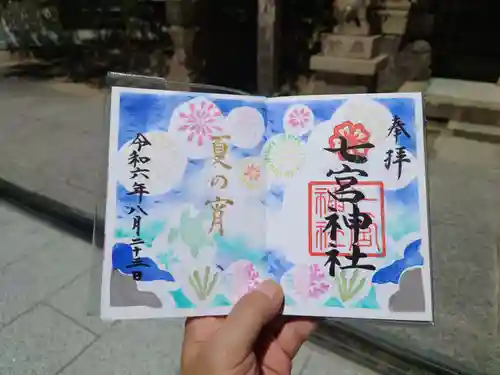 奉拝
七宮神社
夏の宵
令和六年八月二十三日